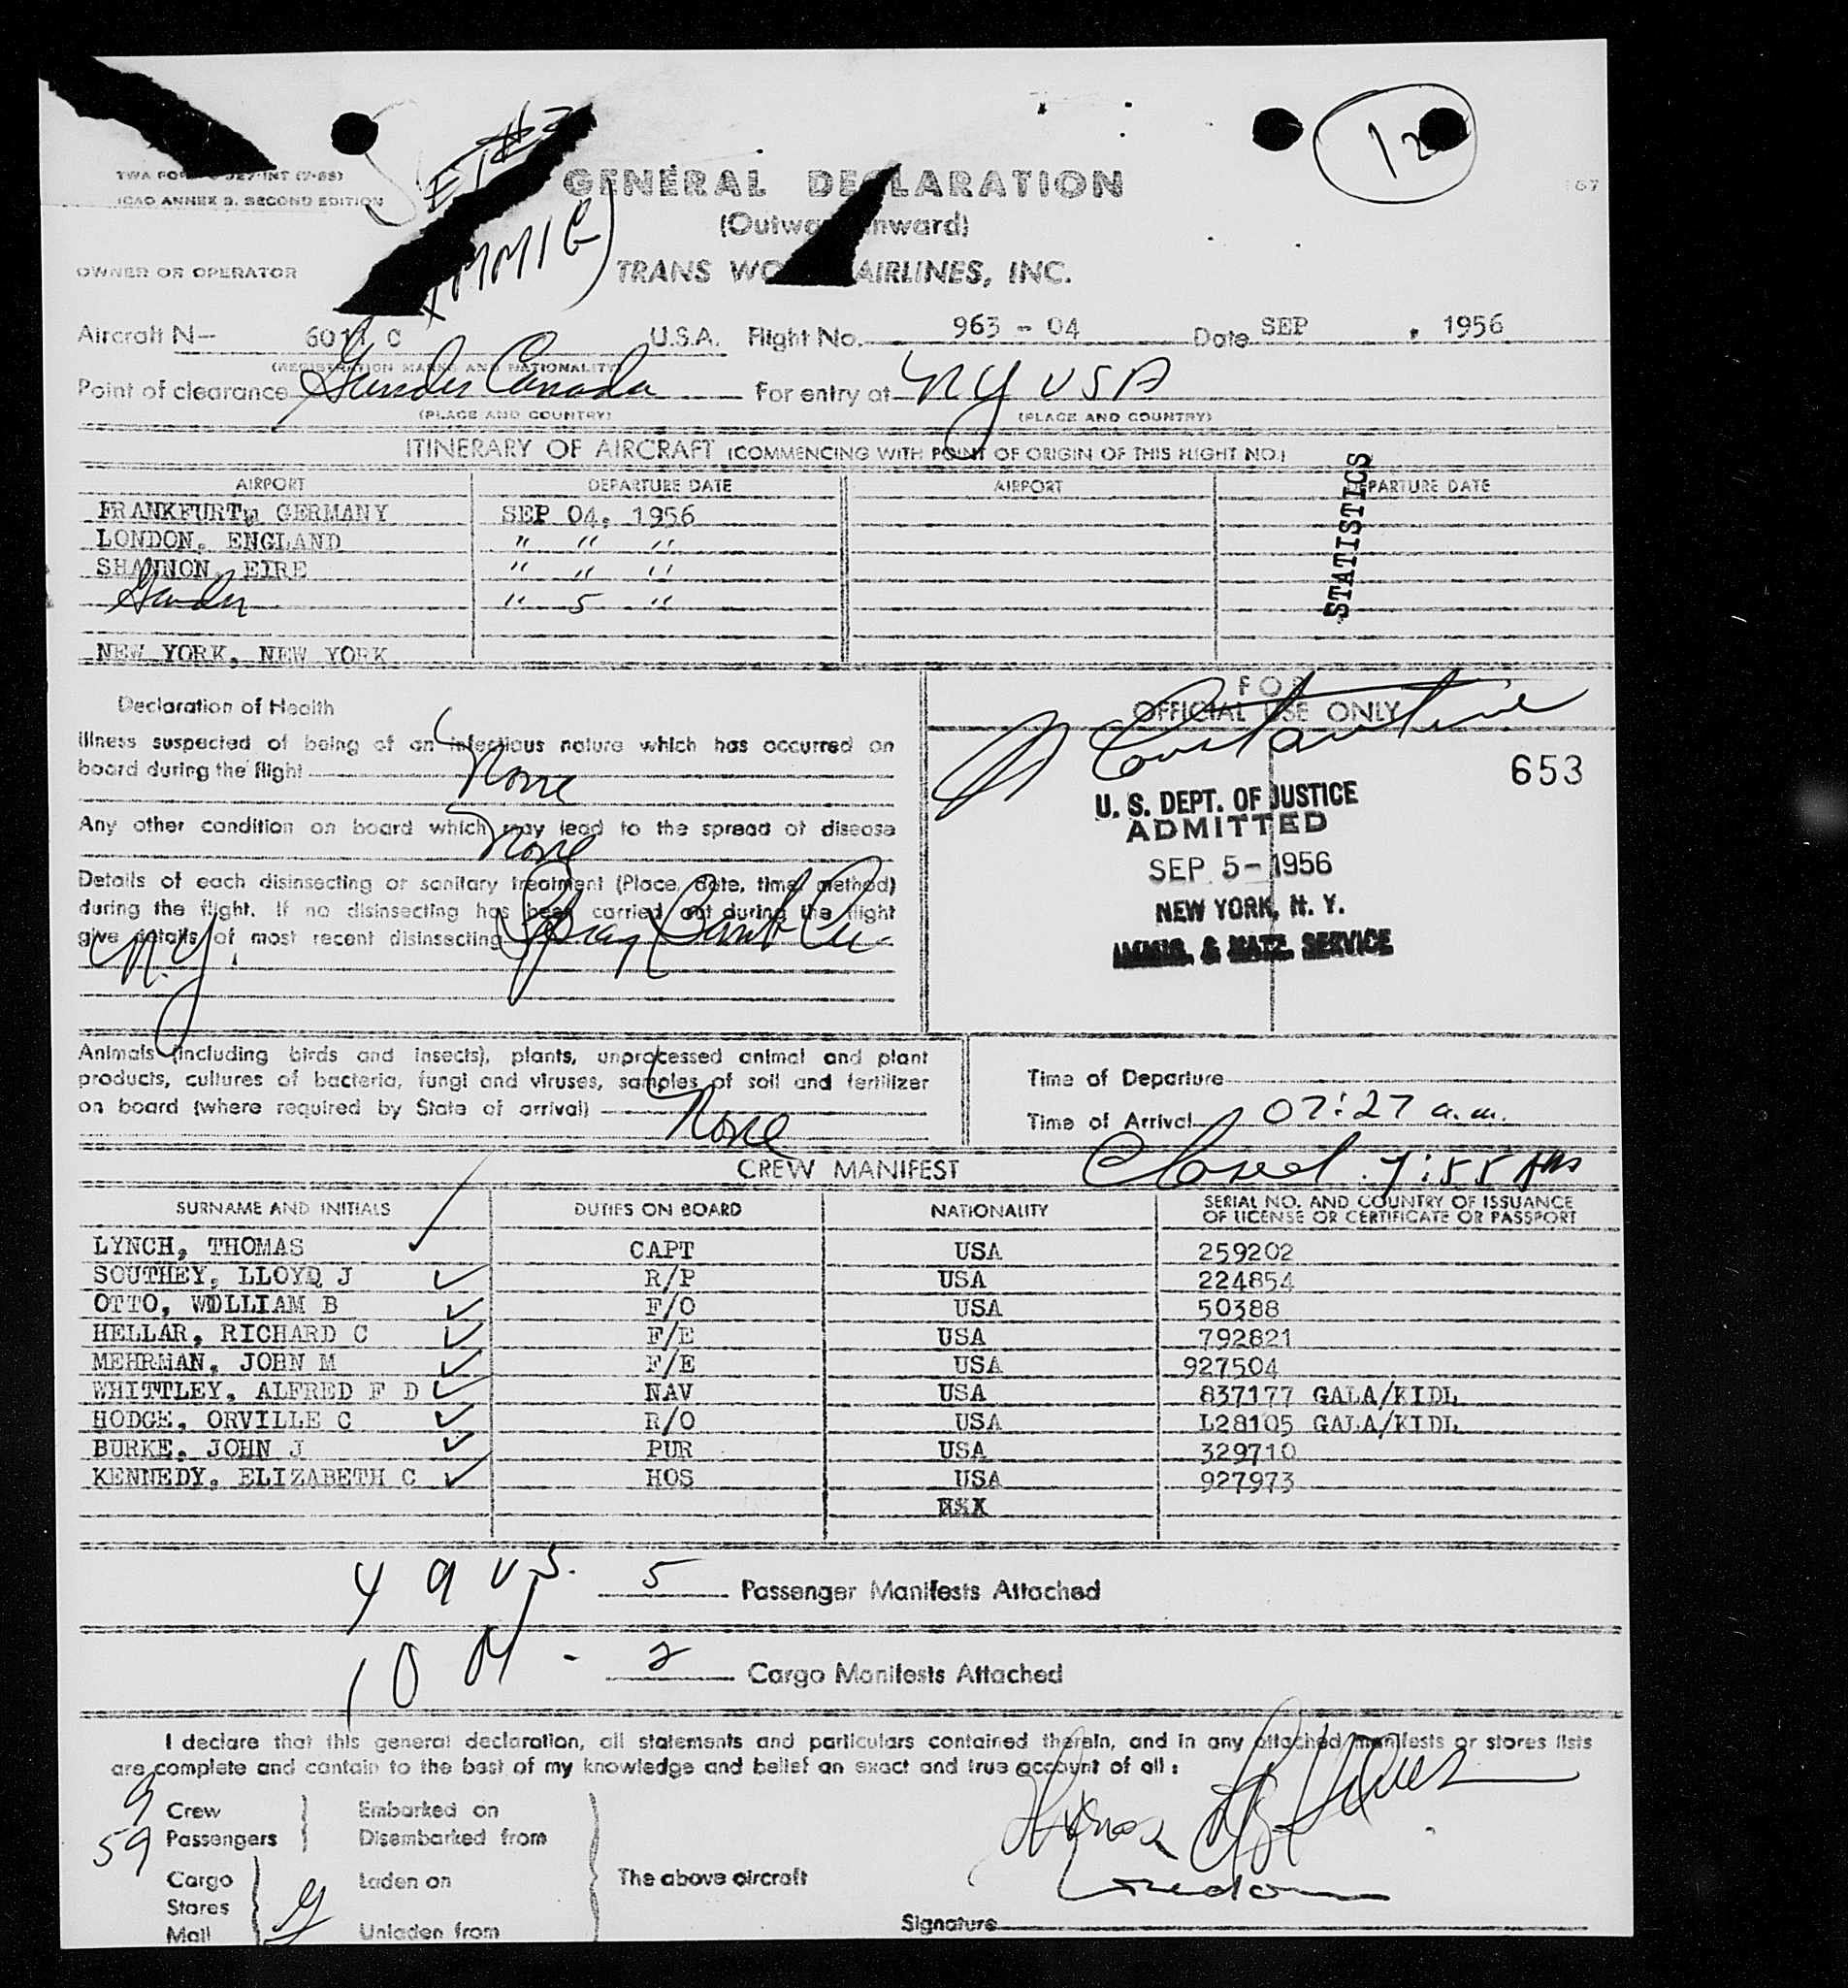 12
SET #2
(IMMIG)
TWA FORM INT (7-55)
ICAO ANNEX 9, SECOND EDITION
GENERAL DECLARATION
67
(Outward Inward)
OWNER OR OPERATOR TRANS WORLD AIRLINES, INC.
Aircraft N- 6011 C U.S.A. Flight No. 963 - 04 Date SEP , 1956
(REGISTRATION MARKS AND NATIONALITY)
Point of clearance Gander Canada For entry at NY USA
(PLACE AND COUNTRY) (PLACE AND COUNTRY)
ITINERARY OF AIRCRAFT (COMMENCING WITH POINT OF ORIGIN OF THIS FLIGHT NO.)
AIRPORT DEPARTURE DATE AIRPORT DEPARTURE DATE
FRANKFURT, GERMANY SEP 04, 1956
LONDON, ENGLAND " " "
SHANNON, EIRE " " "
Gander " 5 "
NEW YORK, NEW YORK
STATISTICS
Declaration of Health
Illness suspected of being of an infectious nature which has occurred on
board during the flight None
Any other condition on board which may lead to the spread of disease
None
Details of each disinsecting or sanitary treatment (Place, date, time, method)
during the flight. If no disinsecting has been carried out during the flight
give details of most recent disinsecting Spray
N.Y.
FOR
OFFICIAL USE ONLY
Constantine
653
U. S. DEPT. OF JUSTICE
ADMITTED
SEP 5 - 1956
NEW YORK, N. Y.
IMMIG. & NATZ. SERVICE
Animals (including birds and insects), plants, unprocessed animal and plant
products, cultures of bacteria, fungi and viruses, samples of soil and fertilizer
on board (where required by State of arrival) None
Time of Departure
Time of Arrival 07:27 a.m.
Closed 7:55 AM
CREW MANIFEST
SURNAME AND INITIALS DUTIES ON BOARD NATIONALITY SERIAL NO. AND COUNTRY OF ISSUANCE
OF LICENSE OR CERTIFICATE OR PASSPORT
LYNCH, THOMAS CAPT USA 259202
SOUTHEY, LLOYD J R/P USA 224854
OTTO, WILLIAM B F/O USA 50388
HELLAR, RICHARD C F/E USA 792821
MEHRMAN, JOHN M F/E USA 927504
WHITTLEY, ALFRED F D NAV USA 837177 GALA/KIDL
HODGE, ORVILLE C R/O USA L28105 GALA/KIDL
BURKE, JOHN J PUR USA 329710
KENNEDY, ELIZABETH C HOS USA 927973
49 US. 5 Passenger Manifests Attached
10 A - 2 Cargo Manifests Attached
I declare that this general declaration, all statements and particulars contained therein, and in any attached manifests or stores lists
are complete and contain to the best of my knowledge and belief an exact and true account of all :
9 Crew Embarked on
59 Passengers Disembarked from
Cargo Laden on The above aircraft
Stores
Mail Unladen from
Signature